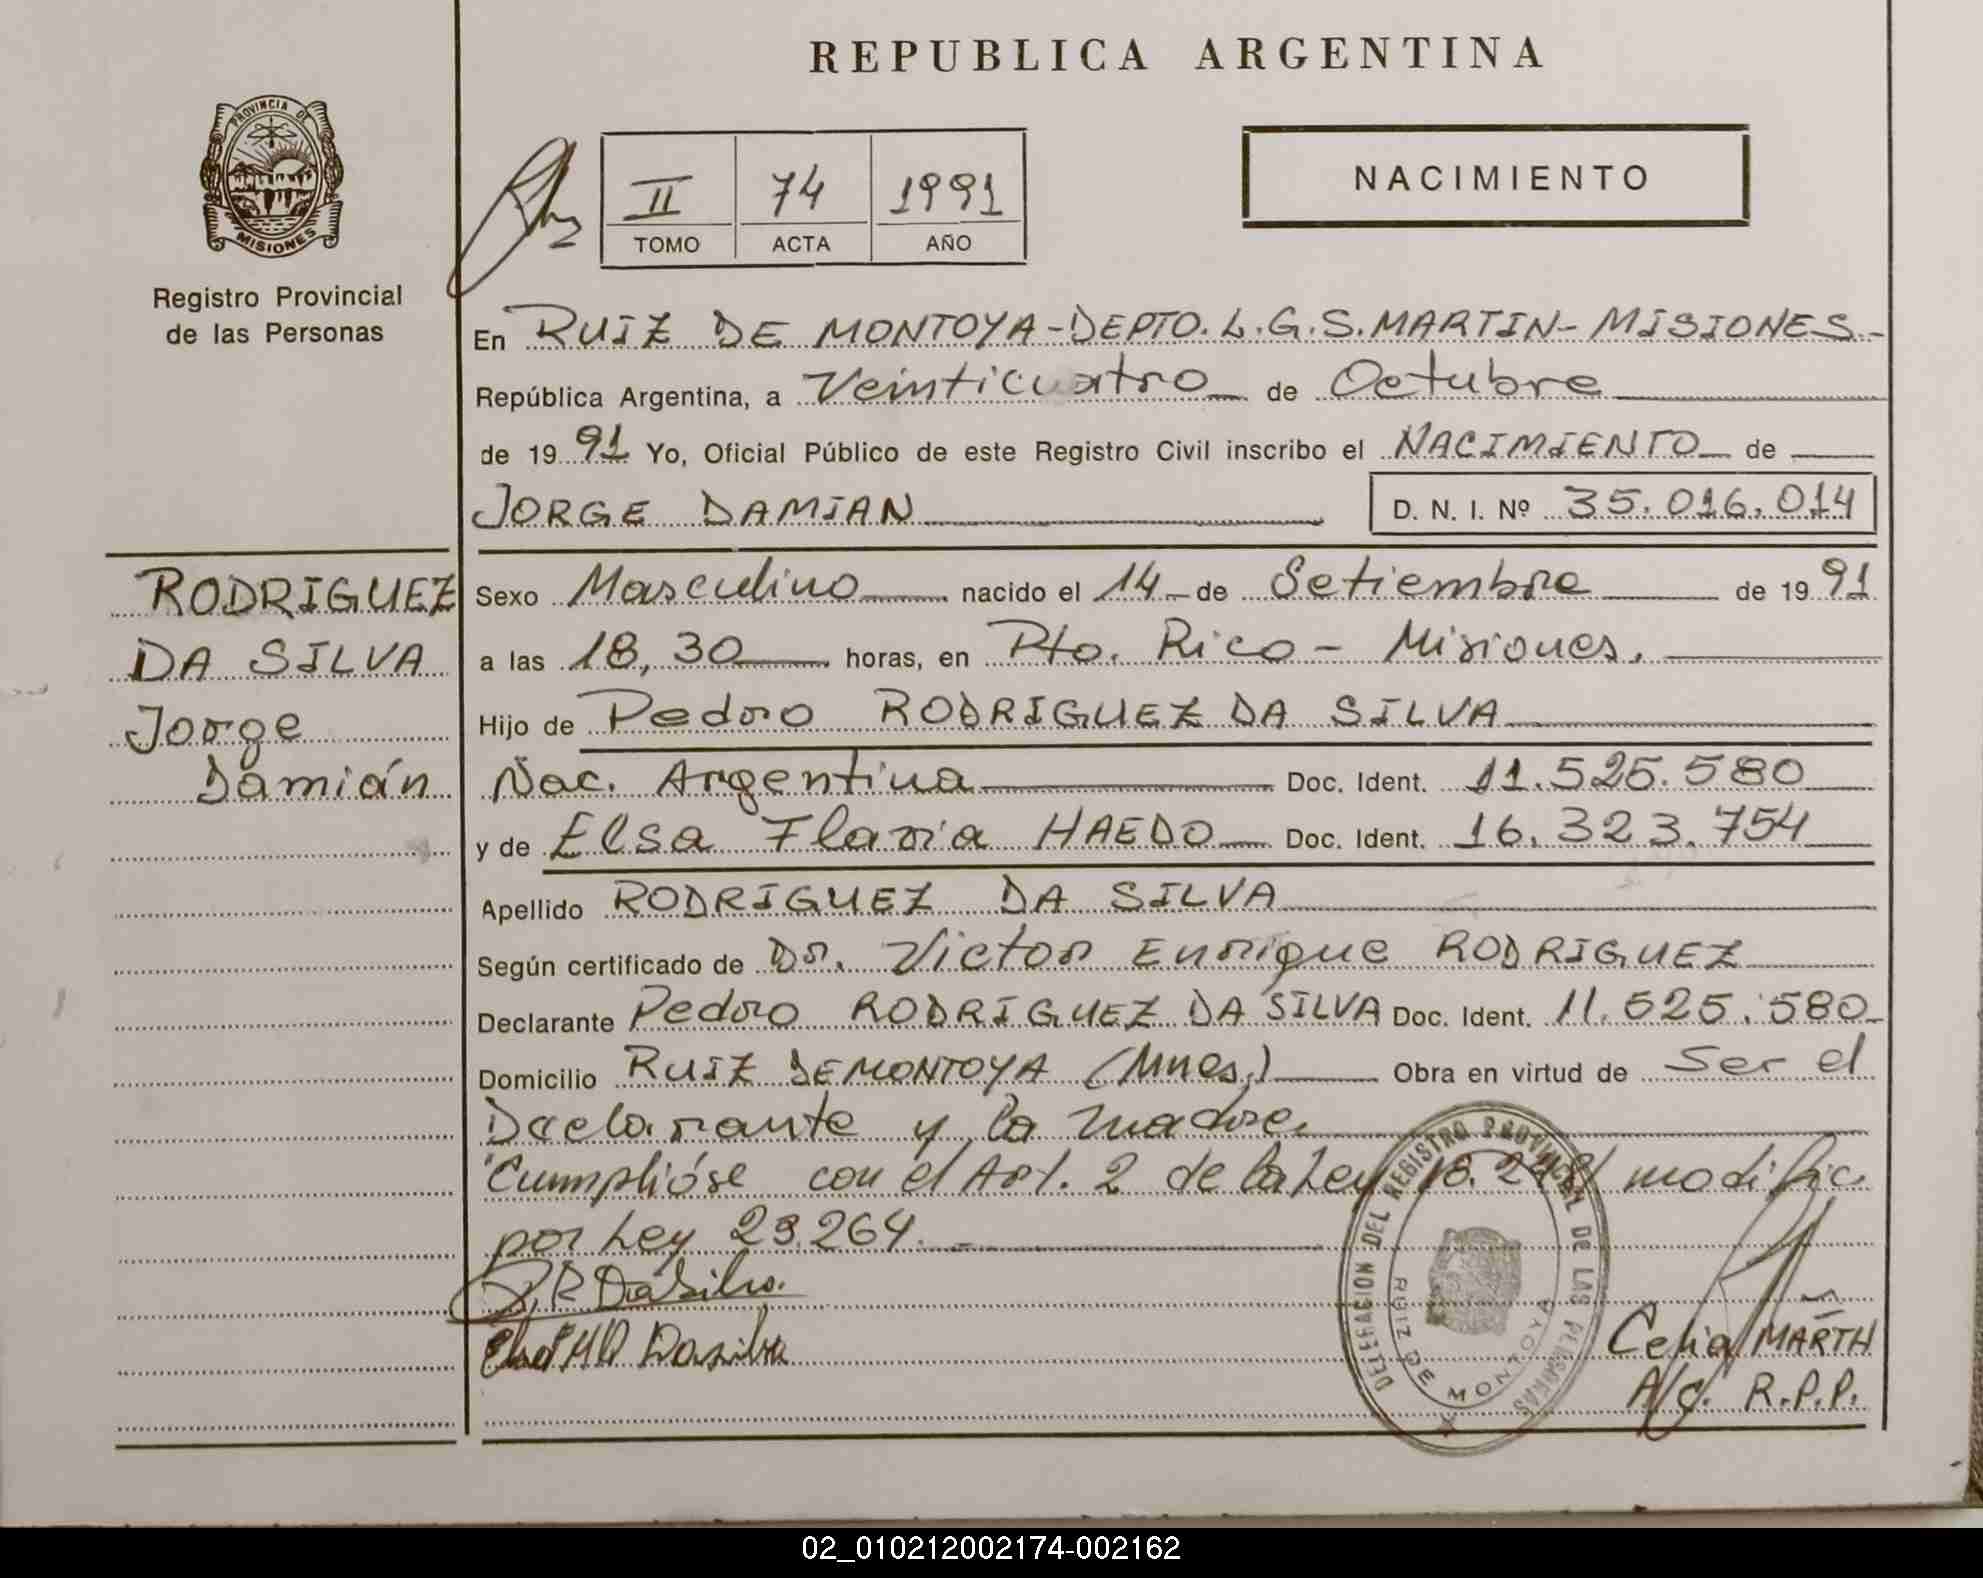 REPUBLICA ARGENTINA
PROVINCIA DE
MISIONES
Registro Provincial
de las Personas
II 74 1991
TOMO ACTA AÑO
NACIMIENTO
En RUIZ DE MONTOYA-DEPTO. L.G.S.MARTIN- MISIONES.-
República Argentina, a Veinticuatro de Octubre
de 19 91 Yo, Oficial Público de este Registro Civil inscribo el NACIMIENTO de
JORGE DAMIAN D. N. I. Nº 35.016.014
RODRIGUEZ
DA SILVA
Jorge
Damián
Sexo Masculino nacido el 14 de Setiembre de 19 91
a las 18,30 horas, en Pto. Rico - Misiones.
Hijo de Pedro RODRIGUEZ DA SILVA
Nac. Argentina Doc. Ident. 11.525.580
y de Elsa Flavia HAEDO Doc. Ident. 16.323.754
Apellido RODRIGUEZ DA SILVA
Según certificado de Dr. Victor Enrique RODRIGUEZ
Declarante Pedro RODRIGUEZ DA SILVA Doc. Ident. 11.525.580
Domicilio RUIZ DE MONTOYA (Mnes.) Obra en virtud de Ser el
Declarante y la madre.
Cumplióse con el Art. 2 de la Ley 18.248/ modific.
por Ley 23.264.
P.R Da Silva.
Dasilva
DELEGACION DEL REGISTRO PROVINCIAL DE LAS PERSONAS
RUIZ DE MONTOYA
Celia MARTH
A/C. R.P.P.
02_010212002174-002162